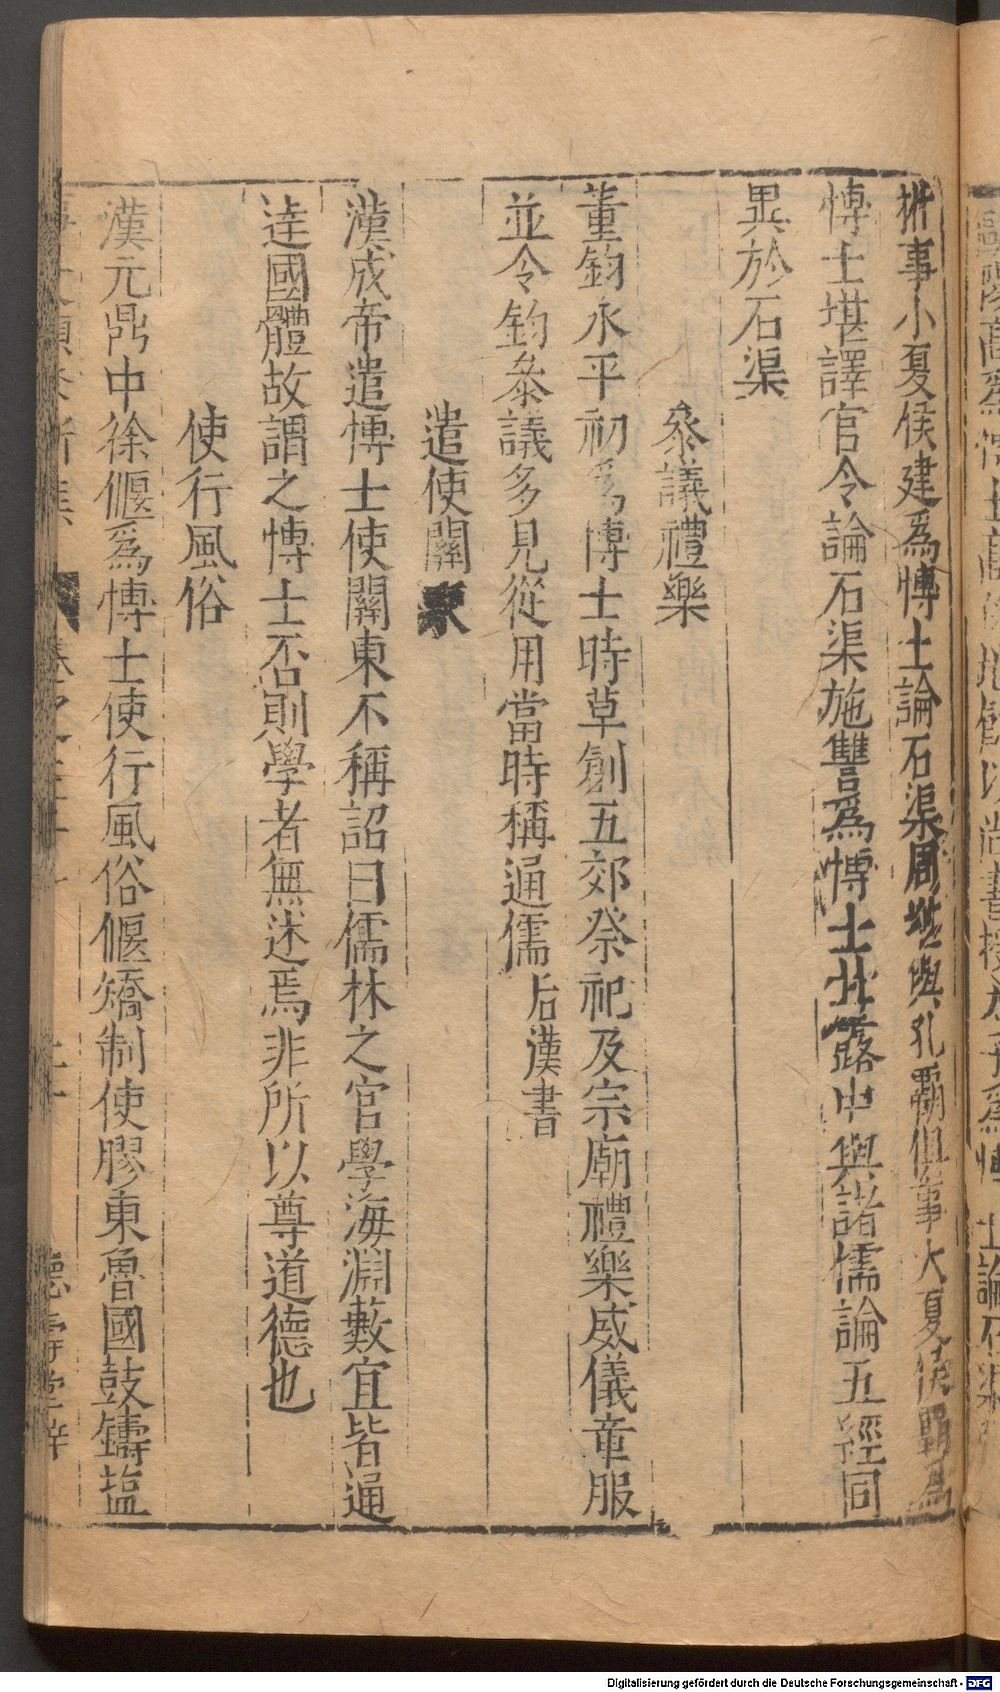 事小夏侯建爲博士論石渠周堪與孔霸俱事大夏侯霸爲
博士堪譯官令論石渠施讐爲博士甘露中與諸儒論五經同
異於石渠
叅議禮樂
董鈞永平初爲博士時草創五郊祭祀及宗廟禮樂威儀章服
並令鈞叅議多見從用當時稱通儒后漢書
遣使關東
漢成帝遣博士使關東不稱詔曰儒林之官學海淵藪宜皆通
達國體故謂之博士否則學者無述焉非所以尊道德也
使行風俗
漢元鼎中徐偃爲博士使行風俗偃矯制使膠東魯國鼓鑄塩
德壽堂梓
Digitalisierung gefördert durch die Deutsche Forschungsgemeinschaft - DFG